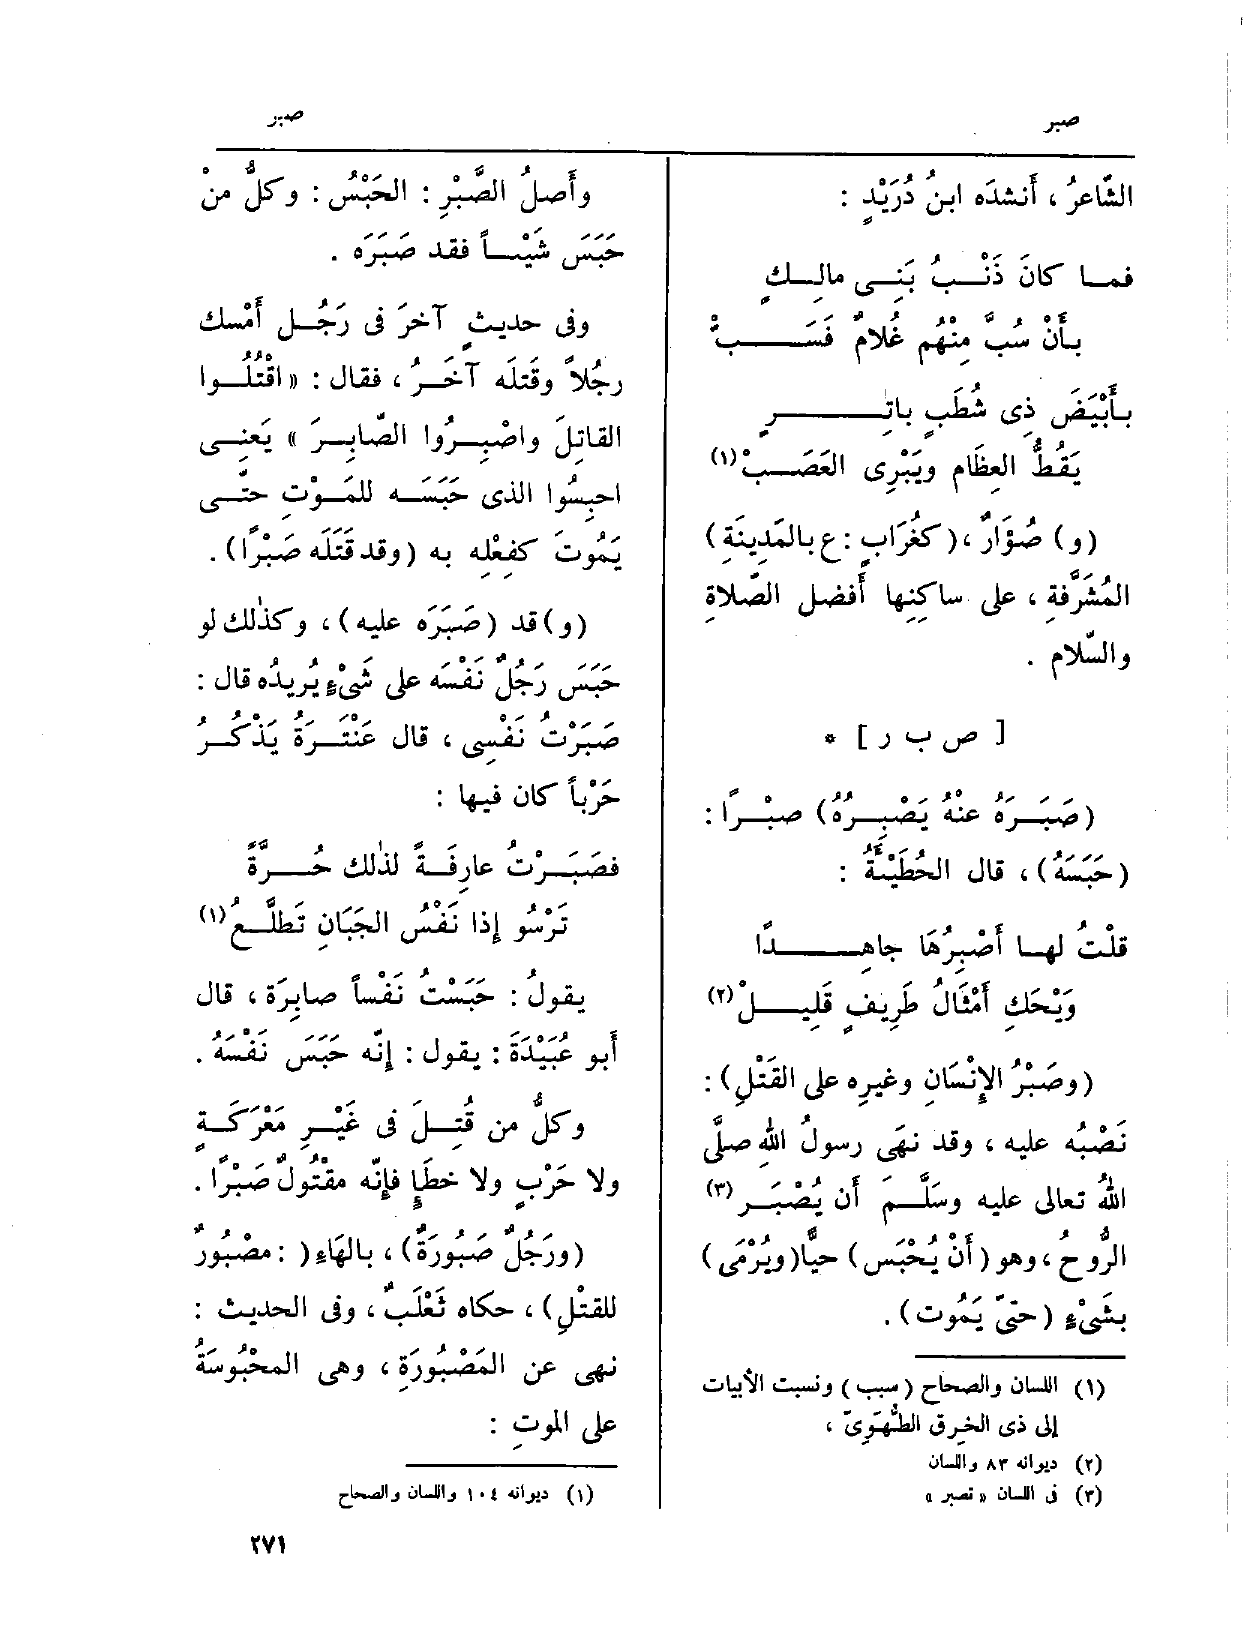 صبر
صبر
الشّاعرُ ، أَنشدَه ابنُ دُرَيْدٍ :
فما كانَ ذَنْبُ بَنِى مالِكٍ
بأَنْ سُبَّ مِنهُم غُلامٌ فَسَبّْ
بأَبْيَضَ ذِى شُطَبٍ باتِرٍ
يَقُطُّ العِظَام ويَبْرِى العَصَبْ(١)
(و) صُؤَارٌ ، (كغُرَابٍ : ع بالمَدِينَةِ)
المُشَرَّفَةِ ، على ساكِنِها أَفضل الصّلاةِ
والسّلام .
[ ص ب ر ] *
(صَبَرَهُ عنهُ يَصْبِرُهُ) صبْرًا :
(حَبَسَهُ) ، قال الحُطَيْئَةُ :
قلْتُ لها أَصْبِرُهَا جاهِدًا
وَيْحَكِ أَمْثَالُ طَرِيفٍ قَلِيلْ(٢)
(وصَبْرُ الإِنْسَانِ وغيرِه على القَتْلِ) :
نَصْبُه عليه ، وقد نهَى رسولُ الله صلَّى
اللهُ تعالى عليه وسَلَّم أَن يُصْبَر(٣)
الرُّوحُ ، وهو (أَنْ يُحْبَس) حيًّا (ويُرْمَى)
بشَىْءٍ (حتّىَ يَمُوت) .
(١) اللسان والصحاح (سبب) ونسبت الأبيات
إلى ذى الخِرق الطُّهَوِىّ ،
(٢) ديوانه ٨٣ واللسان
(٣) فى اللسان « تصبر »
وأَصلُ الصَّبْرِ : الحَبْسُ : وكلُّ منْ
حَبَسَ شَيْئاً فقد صَبَرَه .
وفى حديثٍ آخرَ فى رَجُل أَمْسك
رجُلاً وقَتَله آخَرُ ، فقال : « اقْتُلُوا
القاتِلَ واصْبِرُوا الصّابِرَ » يَعنِى
احبِسُوا الذى حَبَسَه للمَوْتِ حتَّى
يَمُوتَ كفِعْلِه به (وقد قَتَلَه صَبْرًا) .
(و) قد (صَبَرَه عليه) ، وكذلك لو
حَبَسَ رَجُلٌ نَفْسَه على شَىْءٍ يُريدُه قال :
صَبَرْتُ نَفْسِى ، قال عَنْتَرَةُ يَذْكُرُ
حَرْباً كان فيها :
فصَبَرْتُ عارِفَةً لذلك حُرَّةً
تَرْسُو إذا نَفْسُ الجَبَانِ تَطَلَّعُ(١)
يقولُ : حَبَسْتُ نَفْساً صابِرَة ، قال
أَبو عُبَيْدَةَ : يقول : إنّه حَبَسَ نَفْسَهُ .
وكلُّ من قُتِلَ فى غَيْرِ مَعْرَكَةٍ
ولا حَرْبٍ ولا خطَإٍ فإنّه مقْتُولٌ صَبْرًا .
(ورَجُلٌ صَبُورَةٌ) ، بالهَاءِ( : مصْبُورٌ
للقتْلِ) ، حكاه ثَعْلَبٌ ، وفى الحديث :
نهى عن المَصْبُورَةِ ، وهى المحْبُوسَةُ
على الموتِ :
(١) ديوانه ١٠٤ واللسان والصحاح
٢٧١